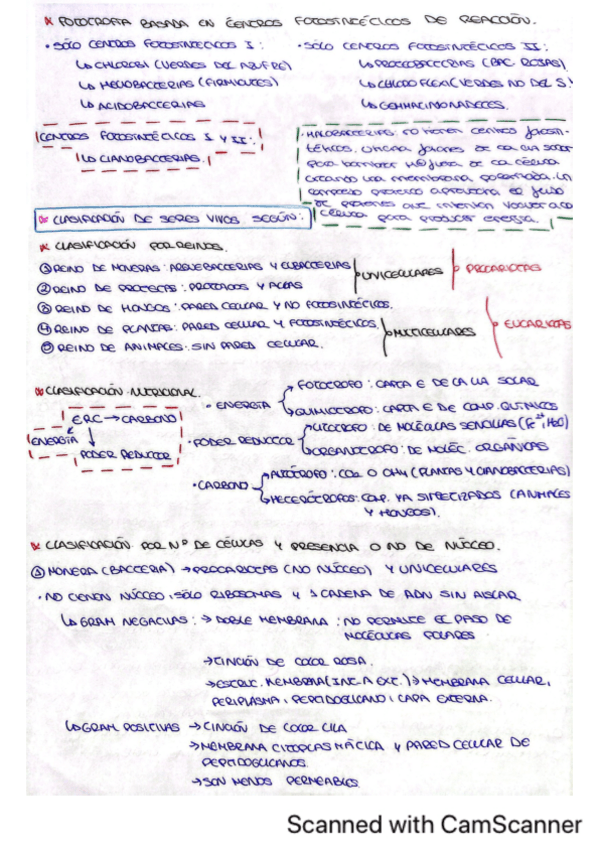 * FOTOTROFIA BASADA EN CENTROS FOTOSINTÉTICOS DE REACCIÓN.
• SÓLO CENTROS FOTOSINTÉTICOS I :
↳ CHLOROBI (VERDES DEL AZUFRE)
↳ HELIOBACTERIAS (FIRMICUTES)
↳ ACIDOBACTERIAS
• SÓLO CENTROS FOTOSINTÉTICOS II :
↳ PROTEOBACTERIAS (BAC. ROJAS)
↳ CHLOROFLEXI (VERDES NO DEL S.)
↳ GEMMATIMONADETES.
CENTROS FOTOSINTÉTICOS I Y II :
↳ CIANOBACTERIAS.
• HALOBACTERIAS: no tienen centros fotosin-
téticos, utilizan fotones de la luz solar
para bombear H⊕ fuera de la célula
creando una membrana polarizada. Un
complejo proteico aprovecha el flujo
de protones que intentan volver a la
célula para producir energía.
* CLASIFICACIÓN DE SERES VIVOS SEGÚN:
* CLASIFICACIÓN POR REINOS.
① REINO DE MONERAS: ARQUEBACTERIAS Y EUBACTERIAS
② REINO DE PROTISTAS: PROTOZOOS Y ALGAS
UNICELULARES
PROCARIOTAS
③ REINO DE HONGOS: PARED CELULAR Y NO FOTOSINTÉTICOS.
④ REINO DE PLANTAS: PARED CELULAR Y FOTOSINTÉTICOS.
⑤ REINO DE ANIMALES: SIN PARED CELULAR.
MULTICELULARES
EUCARIOTAS
* CLASIFICACIÓN NUTRICIONAL.
ERC → CARBONO
ENERGÍA
PODER REDUCTOR
• ENERGÍA
FOTOTROFO: CAPTA E DE LA LUZ SOLAR
QUIMIOTROFO: CAPTA E DE COMP. QUÍMICOS
• PODER REDUCTOR
LITOTROFO: DE MOLÉCULAS SENCILLAS (Fe²⁺, H₂O)
ORGANOTROFO: DE MOLÉC. ORGÁNICAS
• CARBONO
AUTÓTROFO: CO₂ O CH₄ (PLANTAS Y CIANOBACTERIAS)
HETERÓTROFOS: COMP. YA SINTETIZADOS (ANIMALES
Y HONGOS).
* CLASIFICACIÓN POR Nº DE CÉLULAS Y PRESENCIA O NO DE NÚCLEO.
① MONERA (BACTERIA) → PROCARIOTAS (NO NÚCLEO) Y UNICELULARES
• NO TIENEN NÚCLEO, SÓLO RIBOSOMAS Y 1 CADENA DE ADN SIN AISLAR
↳ GRAM NEGATIVAS: → DOBLE MEMBRANA: NO PERMITE EL PASO DE
MOLÉCULAS POLARES
→ TINCIÓN DE COLOR ROSA.
→ ESTRUC. MEMBRANA (INT. A EXT.) → MEMBRANA CELULAR,
PERIPLASMA, PEPTIDOGLICANO, CAPA EXTERNA.
↳ GRAM POSITIVAS → TINCIÓN DE COLOR LILA
→ MEMBRANA CITOPLASMÁTICA Y PARED CELULAR DE
PEPTIDOGLICANOS.
→ SON MENOS PERMEABLES.
Scanned with CamScanner